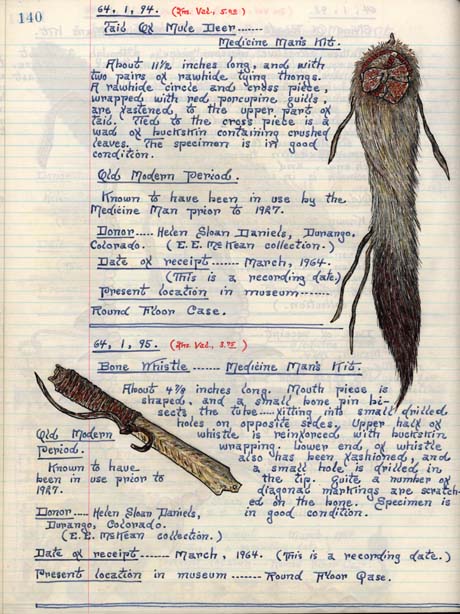 140
64, 1, 94. (Ins. Val., 5.00)
Tail Of Mule Deer .......
Medicine Man's Kit.
About 11 1/2 inches long, and with
two pairs of rawhide tying thongs.
A rawhide circle and cross piece,
wrapped with red porcupine quills,
are fastened to the upper part of
tail. Tied to the cross piece is a
wad of buckskin containing crushed
leaves. The specimen is in good
condition.
Old Modern Period.
Known to have been in use by the
Medicine Man prior to 1927.
Donor .... Helen Sloan Daniels, Durango,
Colorado. (E. E. McKean collection.)
Date of receipt ....... March, 1964.
(This is a recording date.)
Present location in museum -------
Round Floor Case.
64, 1, 95. (Ins. Val.,
Bone Whistle ....... Medicine Man's Kit.
About 4 7/8 inches long. Mouth piece is
shaped, and a small bone pin bi-
sects the tube .... fitting into small drilled
holes on opposite sides. Upper half of
whistle is reinforced with buckskin
wrapping. Lower end of whistle
also has been fashioned, and
a small hole is drilled in
the tip. Quite a number of
diagonal markings are scratch-
ed on the bone. Specimen is
in good condition.
Old Modern
Period.
Known to have
been in use prior to
1927.
Donor .... Helen Sloan Daniels,
Durango, Colorado.
(E. E. McKean collection.)
Date of receipt ....... March, 1964. (This is a recording date.)
Present location in museum ------- Round Floor Case.